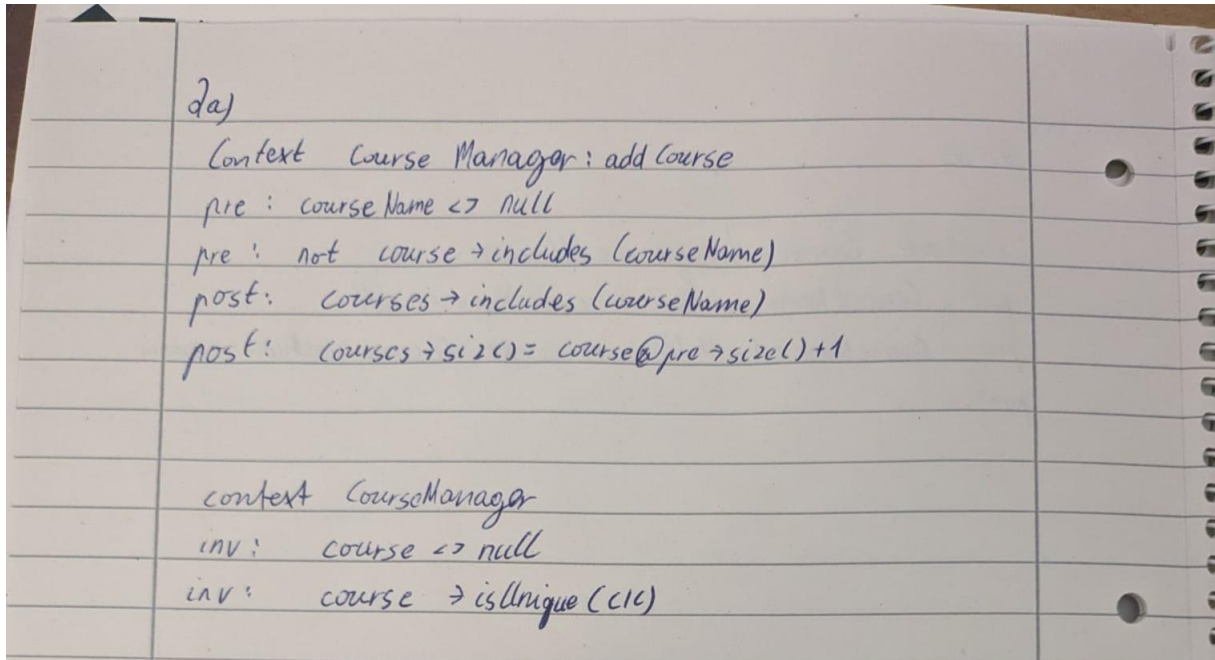 2a)
Context Course Manager: add Course
pre: courseName <> null
pre: not course → includes (courseName)
post: courses → includes (courseName)
post: courses → size() = course@pre → size() + 1
context CourseManager
inv: course <> null
inv: course → isUnique (c|c)